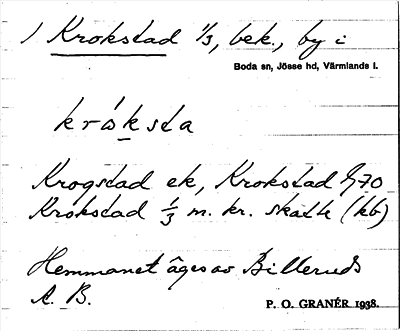 1 Krokstad 1/3, bek., by i
Boda sn, Jösse hd, Värmlands l.
krɷ́ksta
Krogstad ek, Krokstad G70
Krokstad 1/3 m. kr. skatte (kb)
Hemmanet äges av Billeruds
A. B.
P. O. GRANÉR 1938.